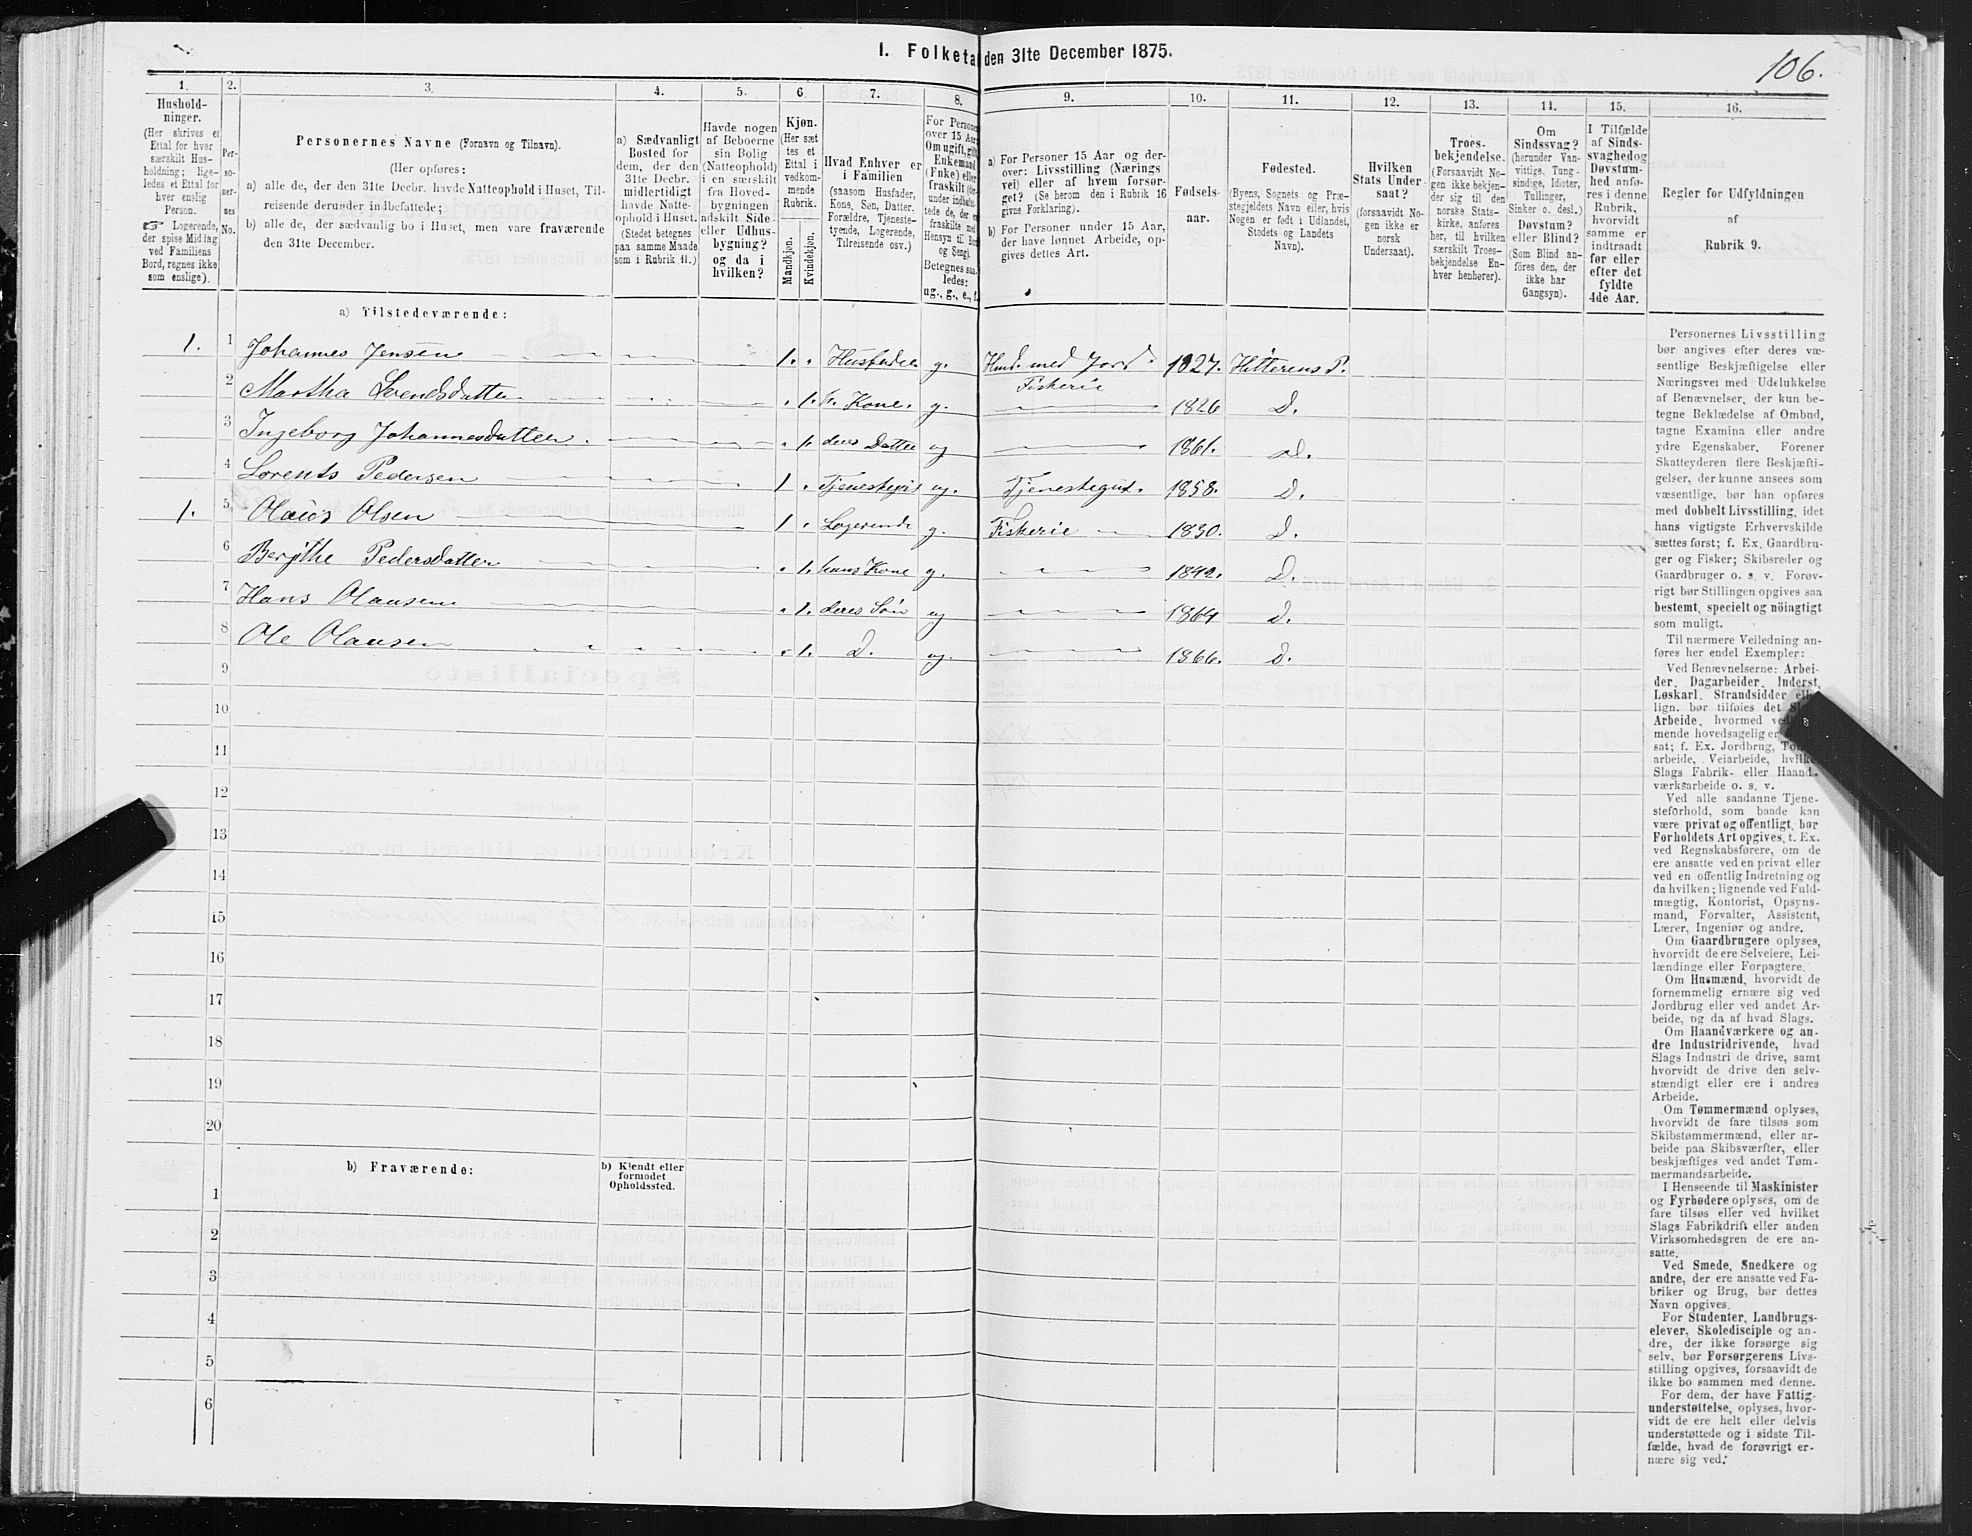 I. Folketa den 31te December 1875.
106.
1. 2. 3. 4. 5. 6. 7. 8. 9. 10. 11. 12. 13. 14. 15. 16.
Hushold-
ninger.
(Her skrives et
Ettal for hver
særskilt Hus-
holdning; lige-
ledes et Ettal for
hver enslig
Person.
☞ Logerende,
der spise Middag
ved Familiens
Bord, regnes ikke
som enslige).
Per-
so-
ner-
nes
No.
Personernes Navne (Fornavn og Tilnavn).
(Her opføres:
a) alle de, der den 31te Decbr. havde Natteophold i Huset, Til-
reisende derunder indbefattede;
b) alle de, der sædvanlig bo i Huset, men vare fraværende
den 31te December.
a) Sædvanligt
Bosted for
dem, der den
31te Decbr.
midlertidigt
havde Natte-
ophold i Huset.
(Stedet betegnes
paa samme Maade
som i Rubrik 11.)
Havde nogen
af Beboerne
sin Bolig
(Natteophold)
i en særskilt
fra Hoved-
bygningen
adskilt Side-
eller Udhus-
bygning?
og da i
hvilken?
Kjøn.
(Her sæt-
tes et
Ettal i
vedkom-
mende
Rubrik.
Mandkjøn.
Kvindekjøn.
Hvad Enhver er
i Familien
(saasom Husfader,
Kone, Søn, Datter,
Forældre, Tjeneste-
tyende, Logerende,
Tilreisende osv.)
For Persone
over 15 Aar
Om ugift, gift,
Enkemand
(Enke) eller
fraskilt (der-
under indbefat-
tede de, der er
fraskilte med
Hensyn til Bord
og Seng).
Betegnes saa-
ledes:
ug., g., e., f.
a) For Personer 15 Aar og der-
over: Livsstilling (Nærings
vei) eller af hvem forsør-
get? (Se herom den i Rubrik 16
givne Forklaring).
b) For Personer under 15 Aar,
der have lønnet Arbeide, op-
gives dettes Art.
Fødsels-
aar.
Fødested.
(Byens, Sognets og Præ-
stegjeldets Navn eller, hvis
Nogen er født i Udlandet,
Stedets og Landets
Navn).
Hvilken
Stats Under
saat?
(forsaavidt No-
gen ikke er
norsk
Undersaat).
Troes-
bekjendelse.
(Forsaavidt No-
gen ikke bekjen-
der sig til den
norske Stats-
kirke, anføres
her, til hvilken
særskilt Troes-
bekjendelse En-
hver henhører).
Om
Sindssvag?
(herunder Van-
vittige, Tung-
sindige, Idioter,
Tullinger,
Sinker o. desl.)
Døvstum?
eller Blind?
(Som Blind an-
føres den, der
ikke har
Gangsyn).
I Tilfælde
af Sinds-
svaghedog
Døvstum-
hed anfø-
res i denne
Rubrik,
hvorvidt
samme er
indtraadt
før eller
efter det
fyldte
4de Aar.
Regler for Udfyldningen
af
Rubrik 9.
a) Tilstedeværende:
1. 1 Johannes Jensen 1. Husfader g. Husm. med Jord. Fiskerie 1827. Hitterens P.
2 Martha Svendsdatter 1. h. Kone. g. 1826 D.
3 Ingeborg Johannesdatter 1. deres Datter ug 1861. D.
4 Lorents Pedersen 1 Tjenestegut ug. Tjenestegut. 1858. D.
1. 5 Olaus Olsen 1 Logerende g. Fiskerie 1830. D.
6 Berithe Pedersdatter 1. hans Kone g. 1842. D.
7 Hans Olausen 1. deres Søn ug 1864 D.
8 Ole Olausen 1. D. ug. 1866. D.
9
10
11
12
13
14
15
16
17
18
19
20
b) Fraværende:
b) Kjendt eller
formodet
Opholdssted.
1
2
3
4
5
6
Personernes Livsstilling
bør angives efter deres væ-
sentlige Beskjæftigelse eller
Næringsvei med Udelukkelse
af Benævnelser, der kun be-
tegne Beklædelse af Ombud,
tagne Examina eller andre
ydre Egenskaber. Forener
Skatteyderen flere Beskjæfti-
gelser, der kunne ansees som
væsentlige, bør han opføres
med dobbelt Livsstilling, idet
hans vigtigste Erhvervskilde
sættes først; f. Ex. Gaardbru-
ger og Fisker; Skibsreder og
Gaardbruger o. s. v. Forøv-
rigt bør Stillingen opgives saa
bestemt, specielt og nöiagtigt
som muligt.
Til nærmere Veiledning an-
føres her endel Exempler:
Ved Benævnelserne: Arbei-
der, Dagarbeider, Inderst,
Løskarl, Strandsidder eller
lign. bør tilføies det
Arbeide, hvormed
mende hovedsagelig er
sat; f. Ex. Jordbrug,
arbeide, Veiarbeide, hvilket
Slags Fabrik- eller Haand-
værksarbeide o. s. v.
Ved alle saadanne Tjene-
steforhold, som baade kan
være privat og offentligt, bør
Forholdets Art opgives, t. Ex.
ved Regnskabsførere, om de
ere ansatte ved en privat eller
ved en offentlig Indretning og
da hvilken; lignende ved Fuld-
mægtig, Kontorist, Opsyns-
mand, Forvalter, Assistent,
Lærer, Ingeniør og andre.
Om Gaardbrugere oplyses,
hvorvidt de ere Selveiere, Lei-
lændinge eller Forpagtere.
Om Husmænd, hvorvidt de
fornemmelig ernære sig ved
Jordbrug eller ved andet Ar-
beide, og da af hvad Slags.
Om Haandværkere og an-
dre Industridrivende, hvad
Slags Industri de drive, samt
hvorvidt de drive den selv-
stændigt eller ere i andres
Arbeide.
Om Tømmermænd oplyses,
hvorvidt de fare tilsøs som
Skibstømmermænd, eller ar-
beide paa Skibsværfter, eller
beskjæftiges ved andet Tøm-
mermandsarbeide.
I Henseende til Maskinister
og Fyrbødere oplyses, om de
fare tilsøs eller ved hvilket
Slags Fabrikdrift eller anden
Virksomhedsgren de ere an-
satte.
Ved Smede, Snedkere og
andre, der ere ansatte ved Fa-
briker og Brug, bør dettes
Navn opgives.
For Studenter, Landbrugs-
elever, Skoledisciple og an-
dre, der ikke forsørge sig
selv, bør Forsørgerens Livs-
stilling opgives, forsaavidt de
ikke bo sammen med denne.
For dem, der have Fattig-
understøttelse, oplyses, hvor-
vidt de ere helt eller delvis
understøttede og i sidste Til-
fælde, hvad de forøvrigt er-
nære sig ved.